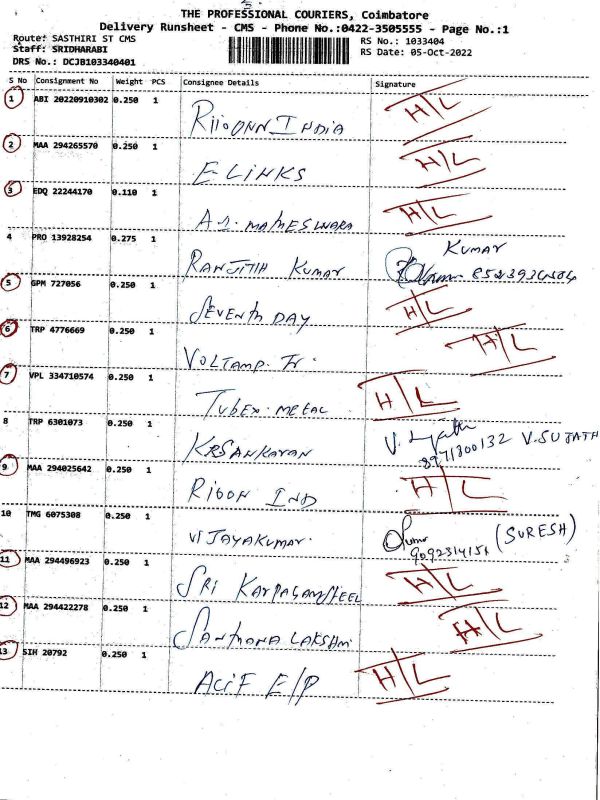 THE PROFESSIONAL COURIERS, Coimbatore
Delivery Runsheet - CMS - Phone No.:0422-3505555 - Page No.:1
Route: SASTHIRI ST CMS
RS No.: 1033404
Staff: SRIDHARABI
RS Date: 05-Oct-2022
DRS No.: DCJB103340401
S No Consignment No Weight PCS Consignee Details Signature
1 ABI 20220910302 0.250 1 RIIOONN INDIA H/L
2 MAA 294265570 0.250 1 E LINKS H/L
3 EDQ 22244170 0.110 1 MAHESWARA H/L
4 PRO 13928254 0.275 1 RANJITH KUMAR KUMAR
5 GPM 727056 0.250 1 SEVENTH DAY H/L
6 TRP 4776669 0.250 1 VOLTAMP Tr. H/L
7 VPL 334710574 0.250 1 TUBEX METAL H/L
8 TRP 6301073 0.250 1 KRSANKARAN V. SUJATH
8971800132
9 MAA 294025642 0.250 1 RIOON IND H/L
10 TMG 6075308 0.250 1 VIJAYAKUMAR (SURESH)
11 MAA 294496923 0.250 1 SRI KARPAGAM STEEL H/L
12 MAA 294422278 0.250 1 SANTHONA LAKSHMI H/L
13 SIH 20792 0.250 1 ACIF E/P H/L